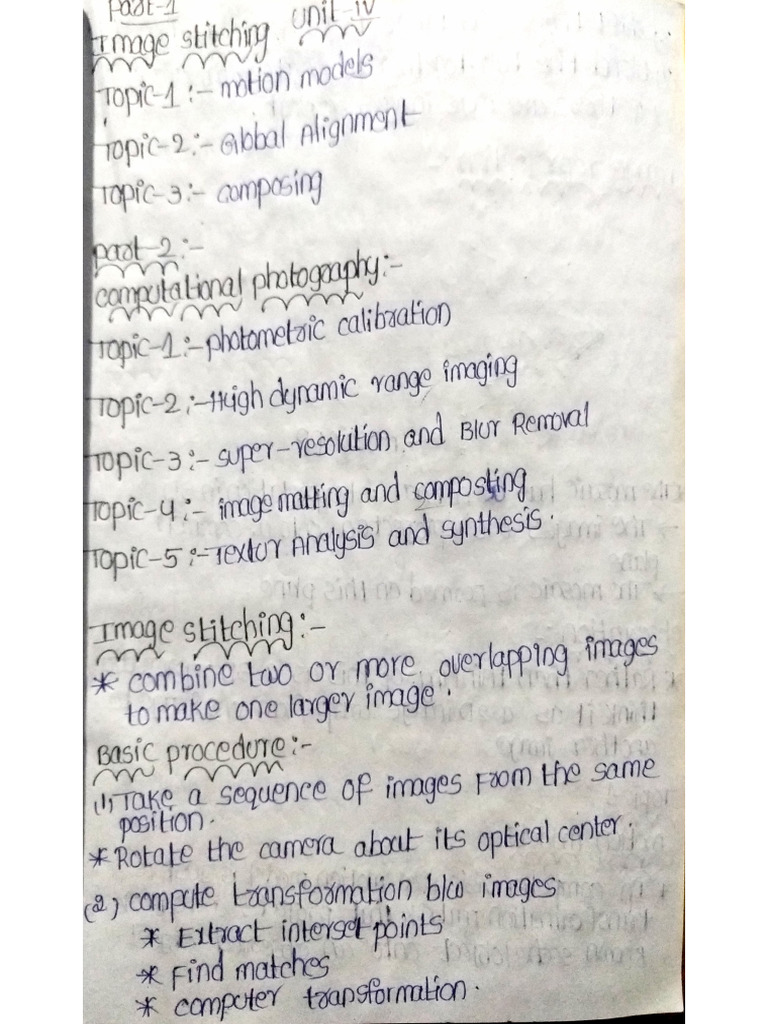 Part-1 Unit-IV
Image stitching
Topic-1:- Motion models
Topic-2:- Global Alignment
Topic-3:- composing
part-2:-
computational photography:-
Topic-1:- photometric calibration
Topic-2:- High dynamic range imaging
Topic-3:- super-resolution and Blur Removal
Topic-4:- image matting and composting
Topic-5:- Textur Analysis and synthesis.
Image stitching:-
* combine two or more overlapping images
to make one larger image.
Basic procedure:-
(1) Take a sequence of images from the same
position.
* Rotate the camera about its optical center.
(2) compute transformation b/w images
* Extract interset points
* Find matches
* computer transformation.